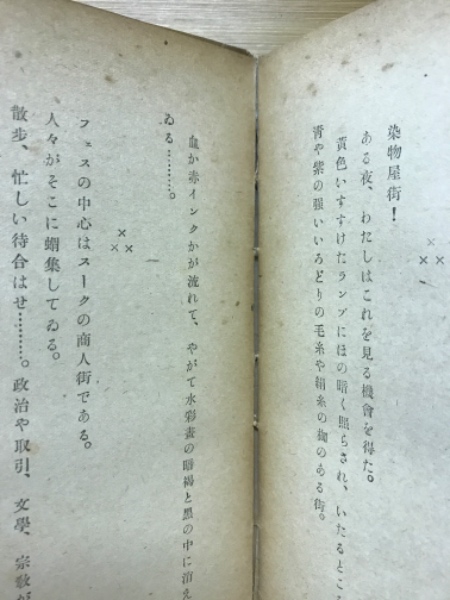 ×
××
染物屋街！
ある夜、わたしはこれを見る機會を得た。
黄色いすすけたランプにほの暗く照らされ、いたるところ
青や紫の强いいろどりの毛糸や絹糸の捆のある街。
血か赤インクかが流れて、やがて水彩畫の暗褐と黑の中に消え
ゐる………。
×
××
フェスの中心はスークの商人街である。
人々がそこに蝟集してゐる。
散歩、忙しい待合はせ………。政治や取引、文學、宗敎が